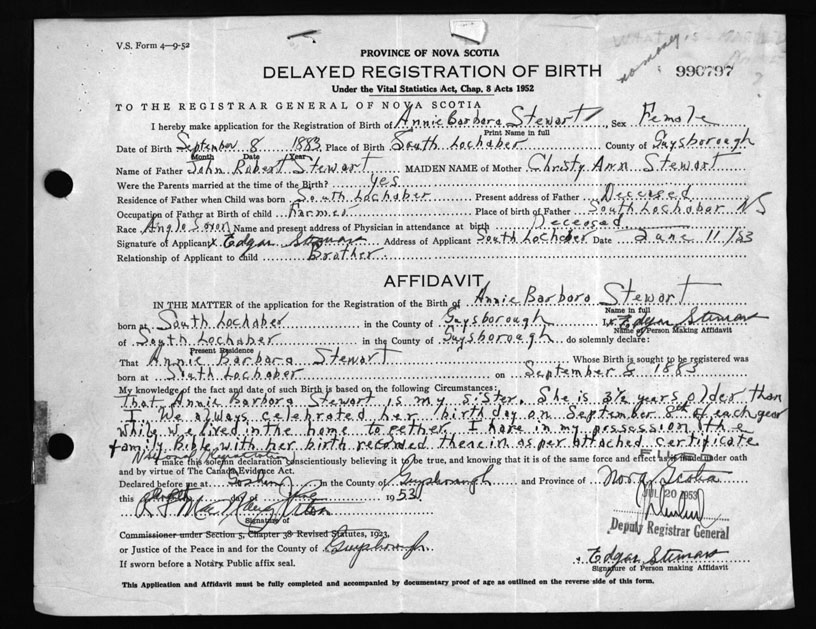 V.S. Form 4—9-52
PROVINCE OF NOVA SCOTIA
DELAYED REGISTRATION OF BIRTH
no money
990797
Under the Vital Statistics Act, Chap. 8 Acts 1952
TO THE REGISTRAR GENERAL OF NOVA SCOTIA
I hereby make application for the Registration of Birth of Annie Barbara Stewart Sex Female
Print Name in full
Date of Birth September 8 1883 Place of Birth South Lochaber County of Guysborough
Month Date Year
Name of Father John Robert Stewart MAIDEN NAME of Mother Christy Ann Stewart
Were the Parents married at the time of the Birth? yes
Residence of Father when Child was born South Lochaber Present address of Father Deceased
Occupation of Father at Birth of child Farmer Place of birth of Father South Lochaber NS
Race Anglo Saxon Name and present address of Physician in attendance at birth Deceased
Signature of Applicant x Edgar Stewart Address of Applicant South Lochaber Date June 11/53
Relationship of Applicant to child Brother
AFFIDAVIT
IN THE MATTER of the application for the Registration of the Birth of Annie Barbara Stewart
Name in full
born at South Lochaber in the County of Guysborough I, x Edgar Stewart
Name of Person Making Affidavit
of South Lochaber in the County of Guysborough do solemnly declare:
Present Residence
That Annie Barbara Stewart Whose Birth is sought to be registered was
born at South Lochaber on September 8 1883
My knowledge of the fact and date of such Birth is based on the following Circumstances:
That Annie Barbara Stewart is my sister. She is 3½ years older than
I. We always celebrated her birthday on September 8th of each year
while we lived in the home together. I have in my possession the
family Bible with her birth recorded therein as per attached certificate
National Registration
I make this solemn declaration conscientiously believing it to be true, and knowing that it is of the same force and effect as if made under oath
and by virtue of The Canada Evidence Act.
Declared before me at Goshen in the County of Guysborough and Province of Nova Scotia
this day of June 1953
JUL 20 1953
Signature of
Deputy Registrar General
Commissioner under Section 5, Chapter 38 Revised Statutes, 1923,
or Justice of the Peace in and for the County of Guysborough
If sworn before a Notary Public affix seal.
x Edgar Stewart
Signature of Person making Affidavit
This Application and Affidavit must be fully completed and accompanied by documentary proof of age as outlined on the reverse side of this form.